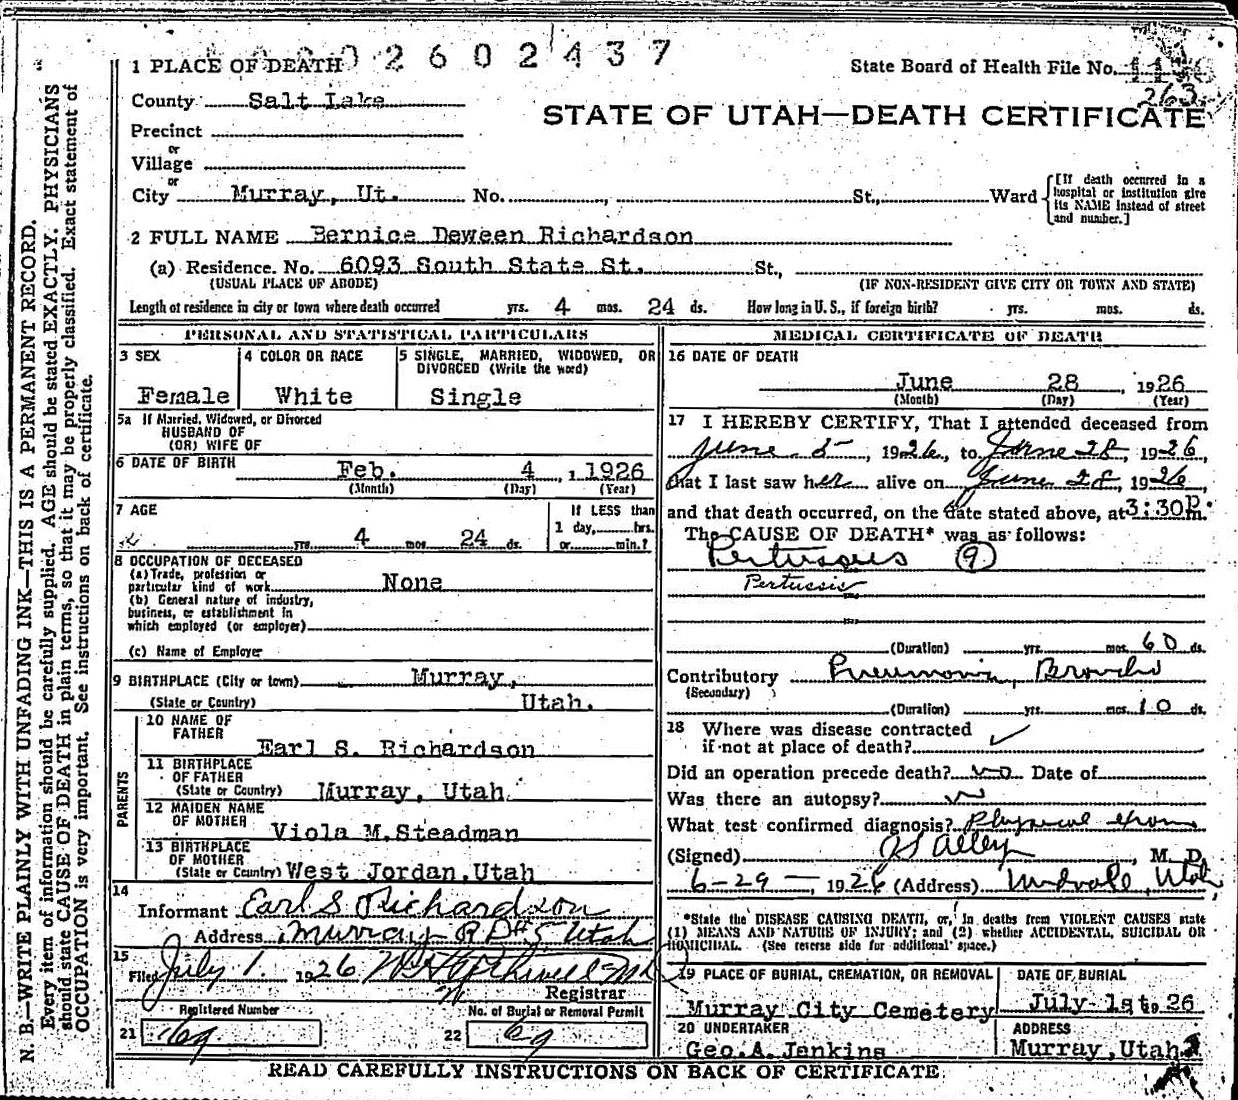 2602437
1 PLACE OF DEATH
State Board of Health File No.
263
County Salt Lake
STATE OF UTAH—DEATH CERTIFICATE
Precinct
or
Village
or
City Murray, Ut. No. , St., Ward
[If death occurred in a hospital or institution give its NAME instead of street and number.]
2 FULL NAME Bernice Deween Richardson
(a) Residence. No. 6093 South State St. St.,
(USUAL PLACE OF ABODE) (IF NON-RESIDENT GIVE CITY OR TOWN AND STATE)
Length of residence in city or town where death occurred yrs. 4 mos. 24 ds. How long in U. S., if foreign birth? yrs. mos. ds.
PERSONAL AND STATISTICAL PARTICULARS
3 SEX
Female
4 COLOR OR RACE
White
5 SINGLE, MARRIED, WIDOWED, OR
DIVORCED (Write the word)
Single
5a If Married, Widowed, or Divorced
HUSBAND OF
(OR) WIFE OF
6 DATE OF BIRTH
Feb. 4, 1926
(Month) (Day) (Year)
7 AGE
yrs. 4 mos. 24 ds.
If LESS than
1 day, hrs.
or min.?
8 OCCUPATION OF DECEASED
(a) Trade, profession or
particular kind of work None
(b) General nature of industry,
business, or establishment in
which employed (or employer)
(c) Name of Employer
9 BIRTHPLACE (City or town) Murray,
(State or Country) Utah.
PARENTS
10 NAME OF
FATHER
Earl S. Richardson
11 BIRTHPLACE
OF FATHER
(State or Country) Murray, Utah.
12 MAIDEN NAME
OF MOTHER
Viola M.Steadman
13 BIRTHPLACE
OF MOTHER
(State or Country) West Jordan,Utah
14
Informant Earl S Richardson
Address Murray RD#5 Utah
15
Filed July 1. 1926
Registrar
Registered Number
No. of Burial or Removal Permit
21 69
22 69
MEDICAL CERTIFICATE OF DEATH
16 DATE OF DEATH
June 28, 1926
(Month) (Day) (Year)
17 I HEREBY CERTIFY, That I attended deceased from
June 5, 1926, to June 28, 1926,
that I last saw her alive on June 28, 1926,
and that death occurred, on the date stated above, at 3:30P.m.
The CAUSE OF DEATH* was as follows:
Pertussus (9)
Pertussis
(Duration) yrs. mos. 60 ds.
Contributory Pneumonia, Broncho
(Secondary)
(Duration) yrs. mos. 10 ds.
18 Where was disease contracted
if not at place of death?
Did an operation precede death? no Date of
Was there an autopsy? no
What test confirmed diagnosis? Physical exam
(Signed) Alley, M. D.
6-29-, 1926 (Address) Midvale, Utah
*State the DISEASE CAUSING DEATH, or, in deaths from VIOLENT CAUSES state
(1) MEANS AND NATURE OF INJURY; and (2) whether ACCIDENTAL, SUICIDAL OR
HOMICIDAL. (See reverse side for additional space.)
19 PLACE OF BURIAL, CREMATION, OR REMOVAL
Murray City Cemetery
DATE OF BURIAL
July-1st 1926
20 UNDERTAKER
Geo.A.Jenkins
ADDRESS
Murray,Utah
READ CAREFULLY INSTRUCTIONS ON BACK OF CERTIFICATE
N. B.—WRITE PLAINLY WITH UNFADING INK—THIS IS A PERMANENT RECORD.
Every item of information should be carefully supplied. AGE should be stated EXACTLY. PHYSICIANS
should state CAUSE OF DEATH in plain terms, so that it may be properly classified. Exact statement of
OCCUPATION is very important. See instructions on back of certificate.